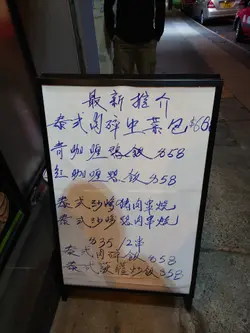 最新推介
泰式肉碎生菜包 $68
青咖喱雞飯 $58
紅咖喱雞飯 $58
泰式沙嗲豬肉串燒
泰式沙嗲雞肉串燒
$35/2串
泰式肉碎飯 $58
泰式炒飯 $58